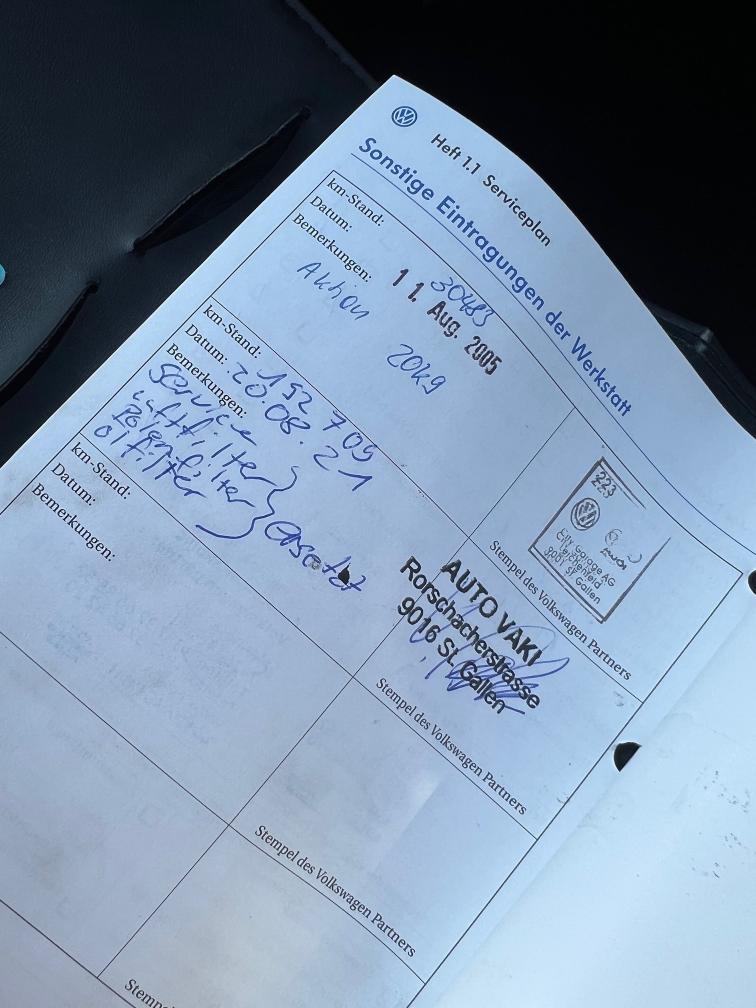 Heft 1.1 Serviceplan
Sonstige Eintragungen der Werkstatt
km-Stand: 30483
Datum: 11. Aug. 2005
Bemerkungen:
Aktion 20K9
223
City Garage AG
9001 St. Gallen
Stempel des Volkswagen Partners
km-Stand: 192 709
Datum: 20.08.21
Bemerkungen:
Service
Luftfilter
Polenfilter
Ölfilter
ersetzt
AUTO VAKI
Rorschacherstrasse
9016 St. Gallen
Stempel des Volkswagen Partners
km-Stand:
Datum:
Bemerkungen:
Stempel des Volkswagen Partners
Stempe